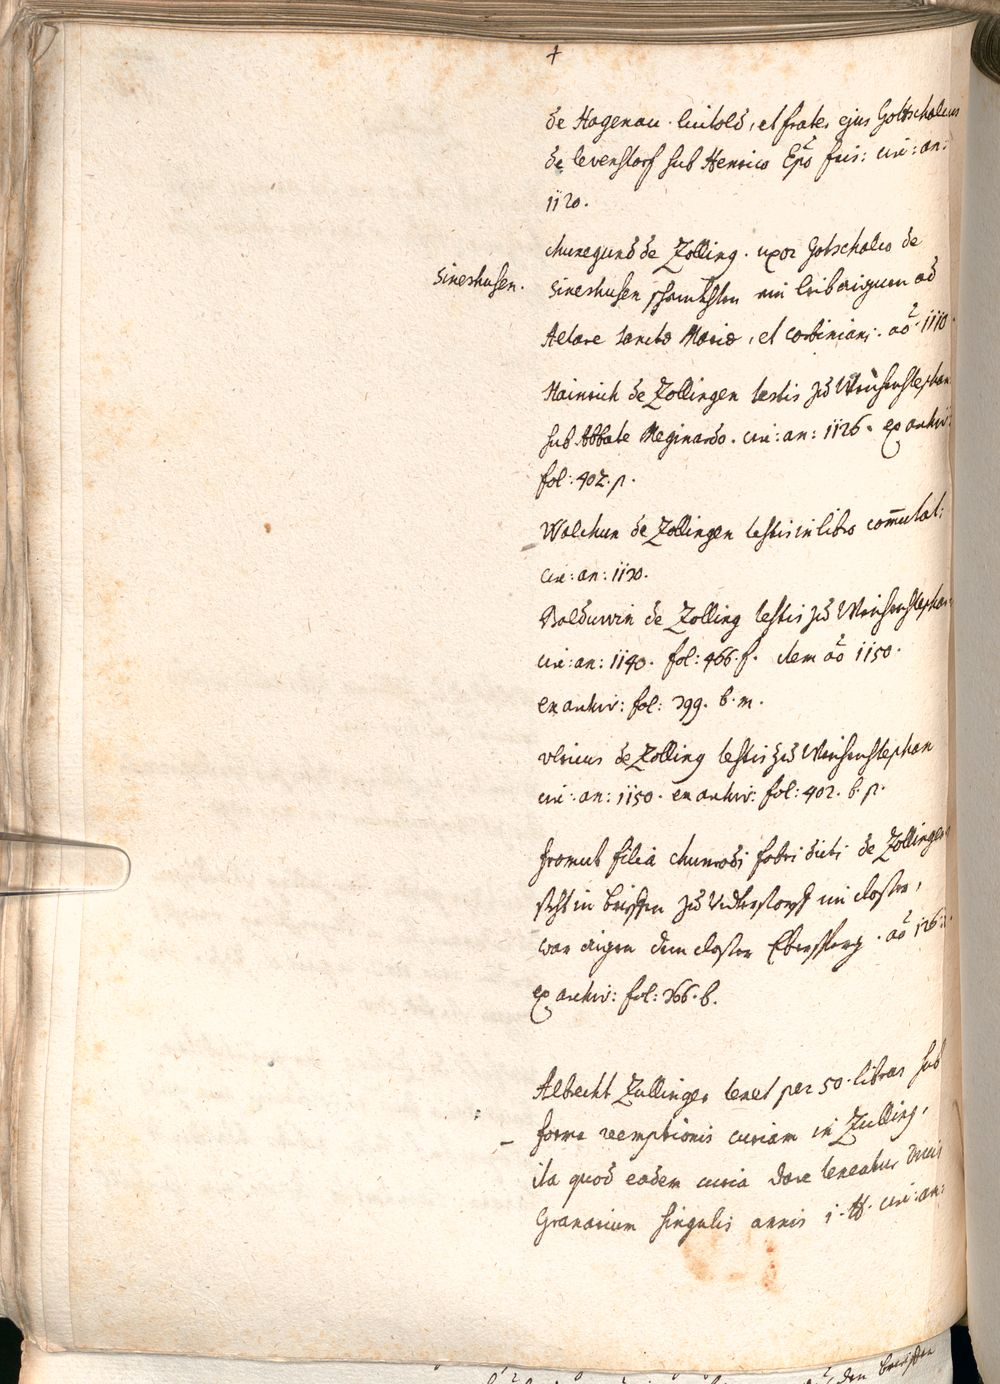 +
de Hagenau. Luitold, et frater ejus Gottschalcus
de levenstorf sub Henrico Epo fris: circ: an:
1120.
chunegund de Zolling. uxor Gotschalco de
Sineshusen.
Sineshusen schankhten ein leibaignen ad
Altare sanctæ Mariæ, et corbiniani: ao. 1110.
Hainrich de Zollingen testis zu Weichenstephan
sub Abbate Meginardo. circ: an: 1126. ex archiv:
fol: 402. p.
Walchun de Zollingen testis in libro com̄utat:
circ: an: 1130.
Balduwin de Zolling testis zu Weichenstephan
circ: an: 1140. fol: 466. f. item ao 1150.
ex archiv: fol: 399. b. m.
vlricus de Zolling testis zu Weichenstephan
circ: an: 1150. ex archiv: fol: 402. b. p.
fromut filia chunradi fabri dicti de Zollingen
im closter,
war aigen dem closter Ebersperg. ao
ex archiv: fol: 366. b.
Albrecht Zullinger tenet per 50. libras sub
forma reemptionis curiam in Zulling,
ita quod eadem curia dare teneatur
Granarium singulis annis 1. ℔. circ: an:
den